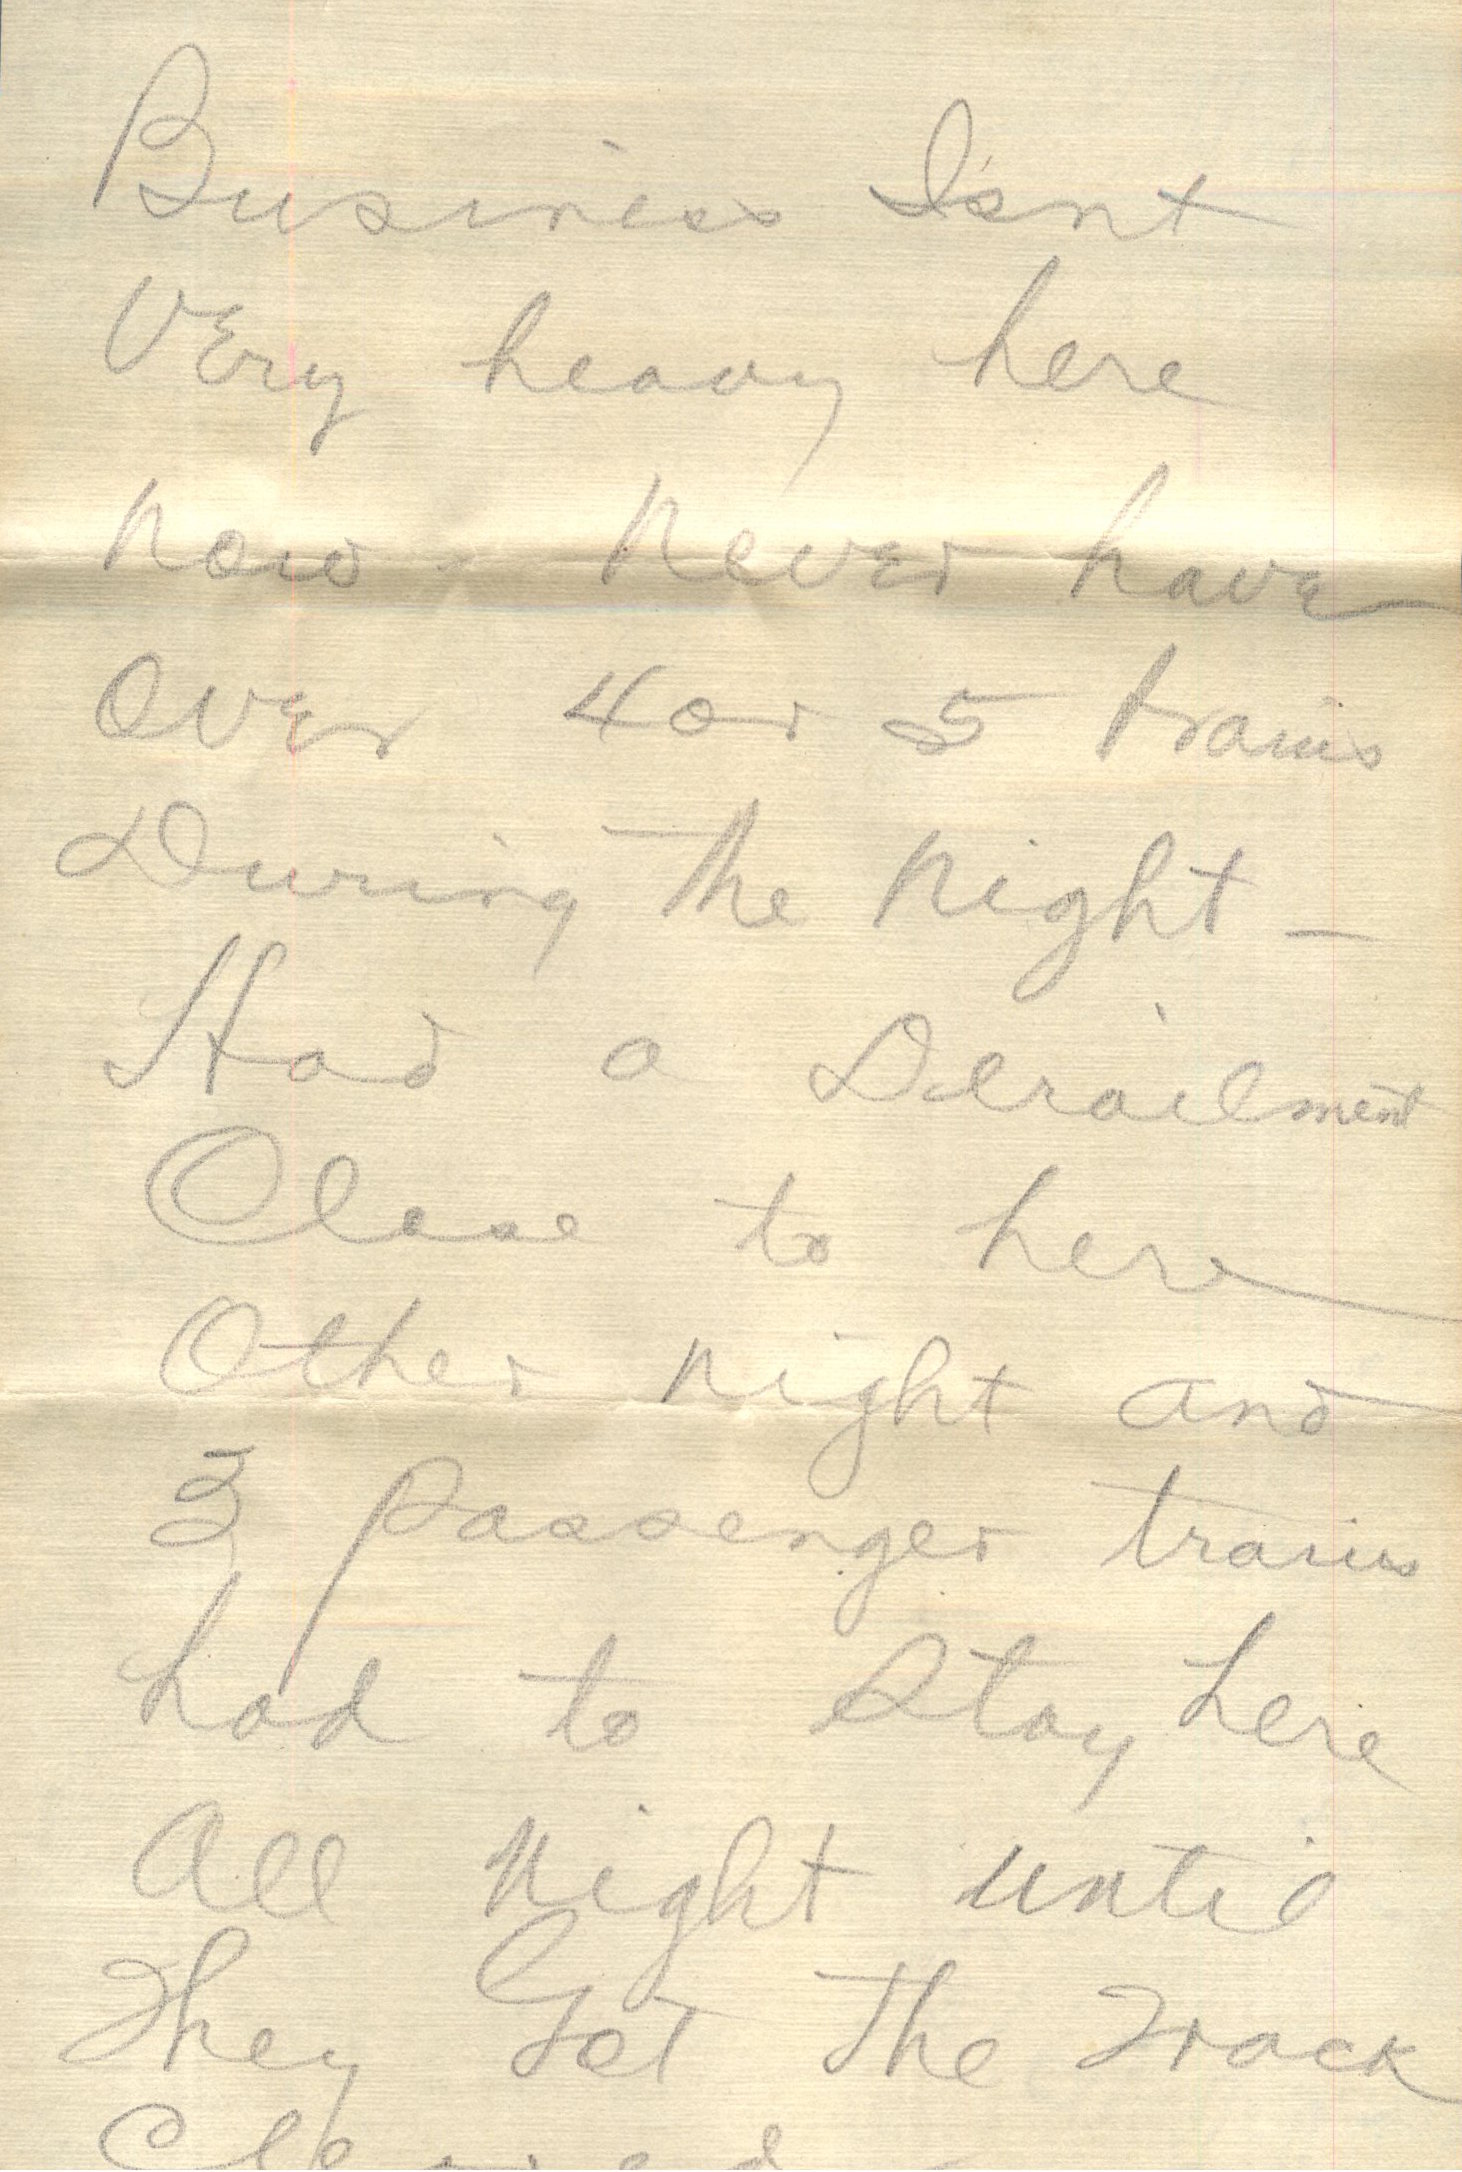 Business Isn't
Very heavy here
Now - Never have
Over 4 or 5 trains
During The Night -
Had a Derailment
Close to here
Other Night and
3 Passenger trains
had to Stay here
All Night until
They Got The Track
Cleared